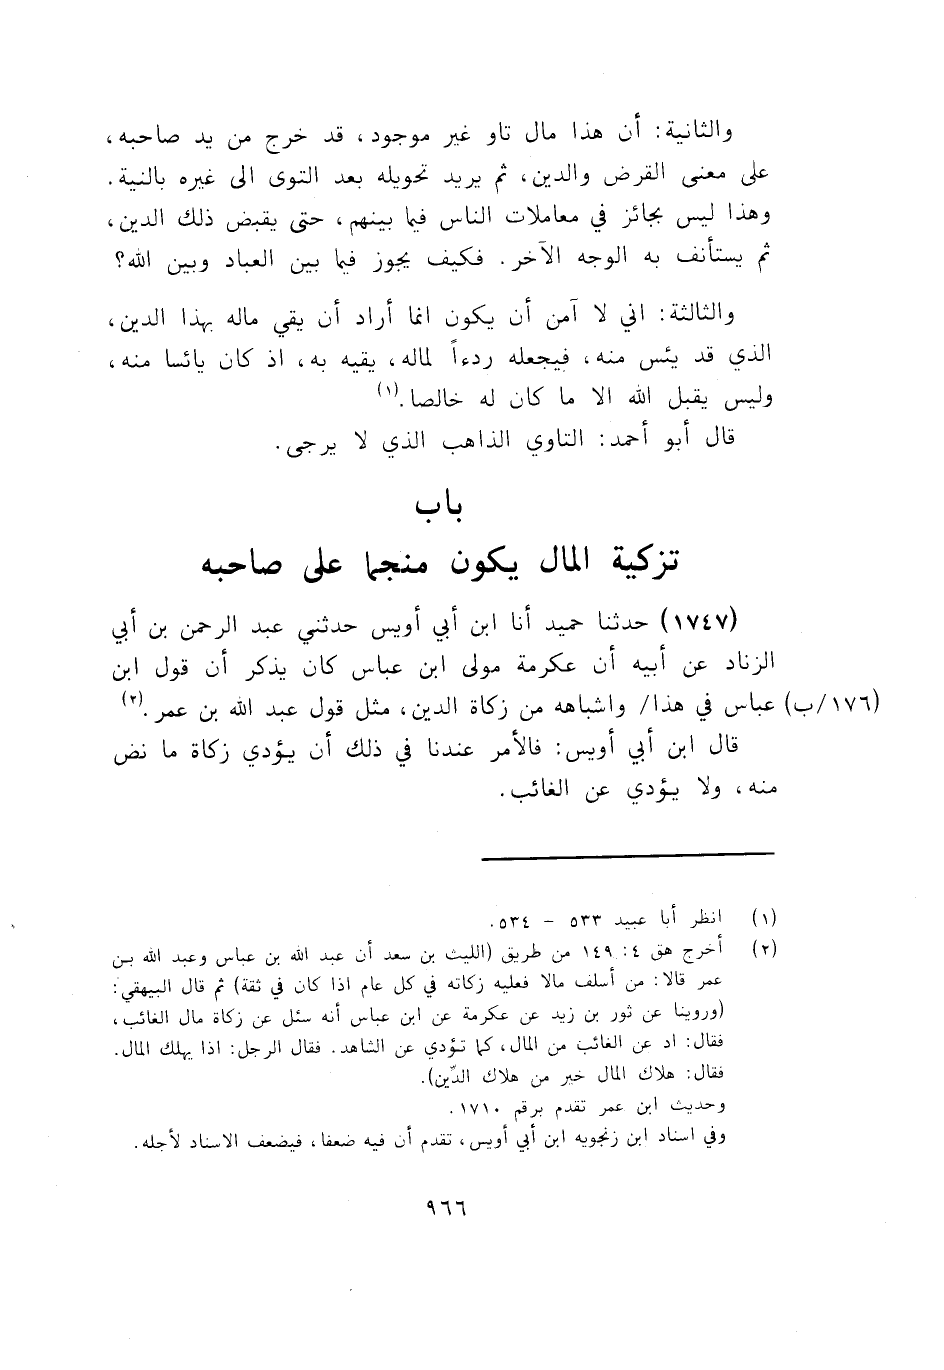 والثانية: أن هذا مال تاو غير موجود، قد خرج من يد صاحبه،
على معنى القرض والدين، ثم يريد تحويله بعد التوى الى غيره بالنية.
وهذا ليس بجائز في معاملات الناس فيما بينهم، حتى يقبض ذلك الدين،
ثم يستأنف به الوجه الآخر. فكيف يجوز فيما بين العباد وبين الله؟
والثالثة: اني لا آمن أن يكون انما أراد أن يقي ماله بهذا الدين،
الذي قد يئس منه، فيجعله ردءاً لماله، يقيه به، اذ كان يائسا منه،
وليس يقبل الله الا ما كان له خالصا.(١)
قال أبو أحمد: التاوي الذاهب الذي لا يرجى.
باب
تزكية المال يكون منجما على صاحبه
(١٧٤٧) حدثنا حميد أنا ابن أبي أويس حدثني عبد الرحمن بن أبي
الزناد عن أبيه أن عكرمة مولى ابن عباس كان يذكر أن قول ابن
(١٧٦/ب) عباس في هذا/ واشباهه من زكاة الدين، مثل قول عبد الله بن عمر.(٢)
قال ابن أبي أويس: فالأمر عندنا في ذلك أن يؤدي زكاة ما نض
منه، ولا يؤدي عن الغائب.
(١) انظر أبا عبيد ٥٣٣ – ٥٣٤.
(٢) أخرج هق ٤: ١٤٩ من طريق (الليث بن سعد أن عبد الله بن عباس وعبد الله بن
عمر قالا: من أسلف مالا فعليه زكاته في كل عام اذا كان في ثقة) ثم قال البيهقي:
(وروينا عن ثور بن زيد عن عكرمة عن ابن عباس أنه سئل عن زكاة مال الغائب،
فقال: اد عن الغائب من المال، كما تؤدي عن الشاهد. فقال الرجل: اذا يهلك المال.
فقال: هلاك المال خير من هلاك الدِّين).
وحديث ابن عمر تقدم برقم ١٧١٠.
وفي اسناد ابن زنجويه ابن أبي أويس، تقدم أن فيه ضعفا، فيضعف الاسناد لأجله.
٩٦٦